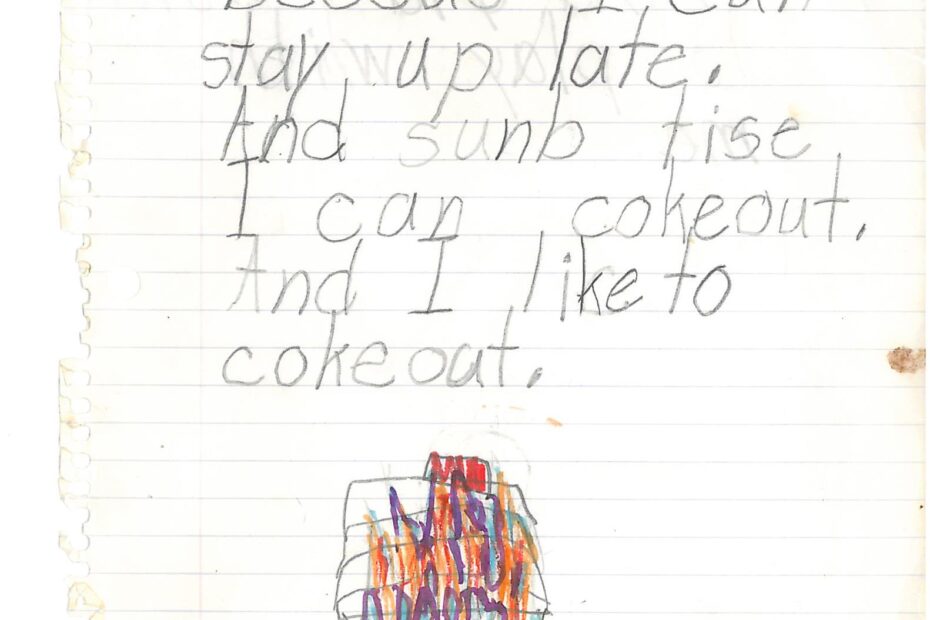 I can
stay up late.
And sunb tise
I can cokeout.
And I like to
cokeout.